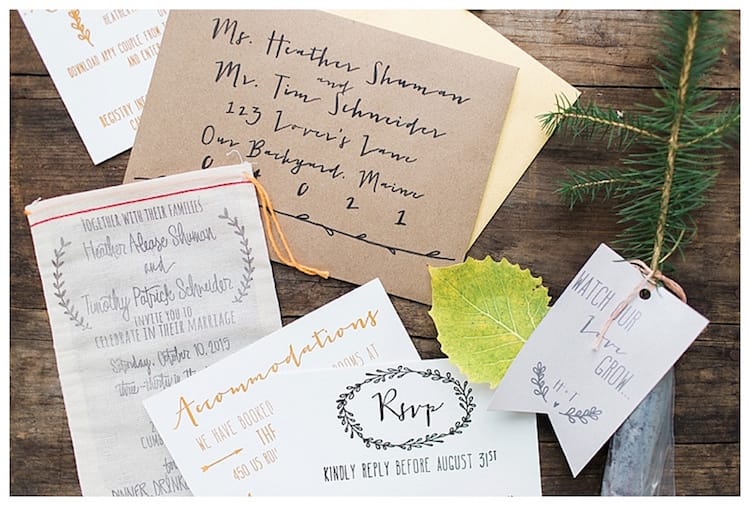 HEATHER
DOWNLOAD APPY COUPLE FROM
AND ENTE
REGISTRY IN
Ms. Heather Shuman
and
Mr. Tim Schneider
123 Lover's Lane
Our Backyard, Maine
0 4 0 2 1
TOGETHER WITH THEIR FAMILIES
Heather Alease Shuman
and
Timothy Patrick Schneider
INVITE YOU TO
CELEBRATE IN THEIR MARRIAGE
Saturday, October 10, 2015
three-thirty in th
CUMB
DINNER, DRINK
Accommodations
WE HAVE BOOKED
ROOMS AT
THE
450 US ROU
Rsvp
KINDLY REPLY BEFORE AUGUST 31ST
WATCH OUR
Love
GROW...
H+T